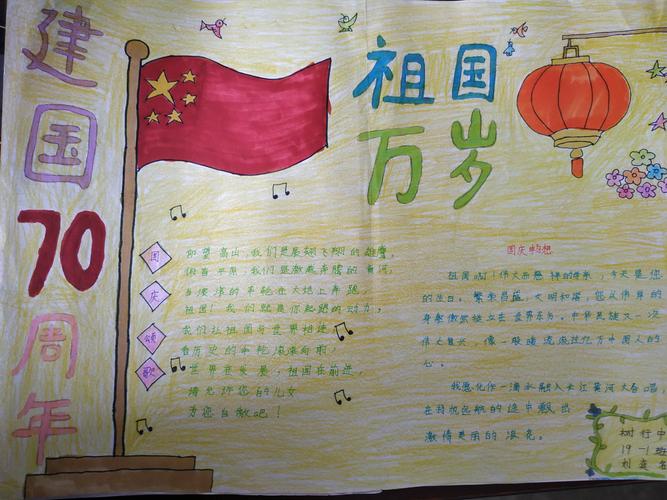 建国70周年
祖国
万岁
国庆颂歌
仰望高山,我们是展翅飞翔的雄鹰
俯首平原,我们是奔腾的黄河
当滚滚的车轮在大地上奔跑
祖国!我们就是你起跑的动力,
我们让祖国与世界相连
看历史的车轮滚滚向前,
世界在发展,祖国在前进,
请允许您的儿女
为您自傲吧!
国庆畅想
祖国啊!伟大而慈祥的母亲,今天是您
的生日,繁荣昌盛,文明和谐,您以伟岸的
身躯傲然挺立在世界东方。中华民族又一次
伟大复兴,像一股暖流流过亿万中国人的
心。
我愿化作一滴水融入长江黄河大合唱,
在扬帆起航的途中飘出
激情美丽的浪花。
树行中
19-1班
刘